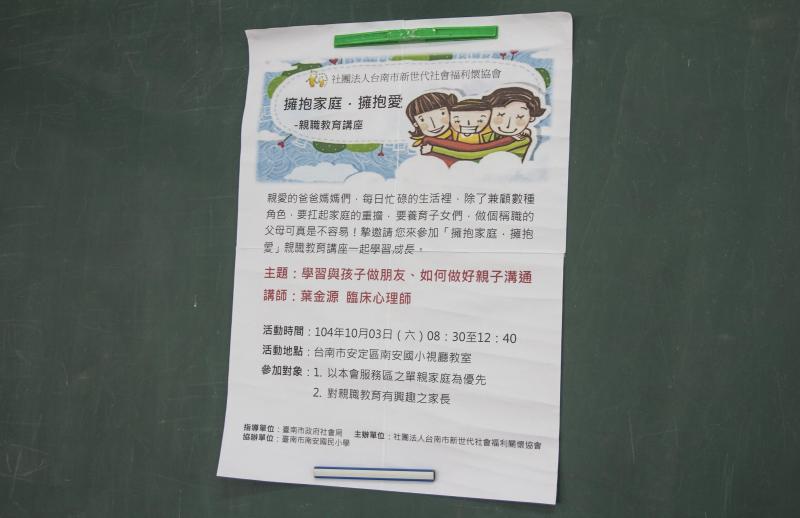 社團法人台南市新世代社會福利懷協會
擁抱家庭．擁抱愛
-親職教育講座
親愛的爸爸媽媽們，每日忙碌的生活裡，除了兼顧數種
角色，要扛起家庭的重擔，要養育子女們，做個稱職的
父母可真是不容易！摯邀請您來參加「擁抱家庭．擁抱
愛」親職教育講座一起學習成長。
主題：學習與孩子做朋友、如何做好親子溝通
講師：葉金源 臨床心理師
活動時間：104年10月03日（六）08：30至12：40
活動地點：台南市安定區南安國小視聽教室
參加對象：1. 以本會服務區之單親家庭為優先
2. 對親職教育有興趣之家長
指導單位：臺南市政府社會局 主辦單位：社團法人台南市新世代社會福利關懷協會
協辦單位：臺南市南安國民小學